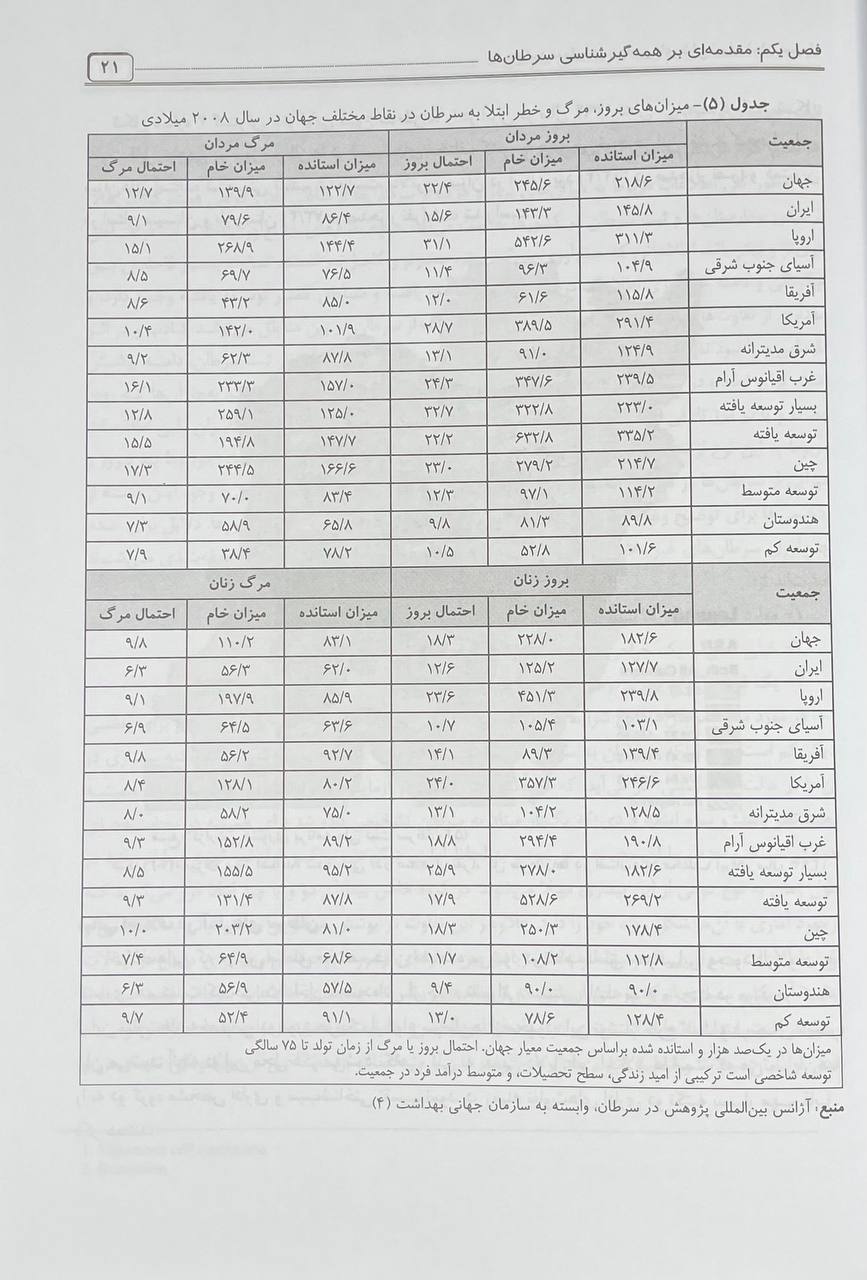 فصل یکم: مقدمه‌ای بر همه‌گیرشناسی سرطان‌ها ۲۱
جدول (۵)- میزان‌های بروز، مرگ و خطر ابتلا به سرطان در نقاط مختلف جهان در سال ۲۰۰۸ میلادی
جمعیت بروز مردان مرگ مردان
میزان استانده میزان خام احتمال بروز میزان استانده میزان خام احتمال مرگ
جهان ۲۱۸/۶ ۲۴۵/۶ ۲۲/۴ ۱۲۲/۷ ۱۳۹/۹ ۱۲/۷
ایران ۱۴۵/۸ ۱۴۳/۳ ۱۵/۶ ۸۶/۴ ۷۹/۶ ۹/۱
اروپا ۳۱۱/۳ ۵۴۲/۶ ۳۱/۱ ۱۴۴/۴ ۲۶۸/۹ ۱۵/۱
آسیای جنوب شرقی ۱۰۴/۹ ۹۶/۳ ۱۱/۴ ۷۶/۵ ۶۹/۷ ۸/۵
آفریقا ۱۱۵/۸ ۶۱/۶ ۱۲/۰ ۸۵/۰ ۴۳/۲ ۸/۶
آمریکا ۲۹۱/۴ ۳۸۹/۵ ۲۸/۷ ۱۰۱/۹ ۱۴۲/۰ ۱۰/۴
شرق مدیترانه ۱۲۴/۹ ۹۱/۰ ۱۳/۱ ۸۷/۸ ۶۲/۳ ۹/۲
غرب اقیانوس آرام ۲۳۹/۵ ۳۴۷/۶ ۲۴/۳ ۱۵۷/۰ ۲۳۳/۳ ۱۶/۱
بسیار توسعه یافته ۲۲۳/۰ ۳۲۲/۸ ۳۲/۷ ۱۲۵/۰ ۲۵۹/۱ ۱۲/۸
توسعه یافته ۳۳۵/۲ ۶۳۲/۸ ۲۲/۲ ۱۴۷/۷ ۱۹۴/۸ ۱۵/۵
چین ۲۱۴/۷ ۲۷۹/۲ ۲۳/۰ ۱۶۶/۶ ۲۴۴/۵ ۱۷/۳
توسعه متوسط ۱۱۴/۲ ۹۷/۱ ۱۲/۳ ۸۳/۴ ۷۰/۰ ۹/۱
هندوستان ۸۹/۸ ۸۱/۳ ۹/۸ ۶۵/۸ ۵۸/۹ ۷/۳
توسعه کم ۱۰۱/۶ ۵۲/۸ ۱۰/۵ ۷۸/۲ ۳۸/۴ ۷/۹
جمعیت بروز زنان مرگ زنان
میزان استانده میزان خام احتمال بروز میزان استانده میزان خام احتمال مرگ
جهان ۱۸۲/۶ ۲۲۸/۰ ۱۸/۳ ۸۳/۱ ۱۱۰/۲ ۹/۸
ایران ۱۲۷/۷ ۱۲۵/۲ ۱۲/۶ ۶۲/۰ ۵۶/۳ ۶/۳
اروپا ۲۳۹/۸ ۴۵۱/۳ ۲۳/۶ ۸۵/۹ ۱۹۷/۹ ۹/۱
آسیای جنوب شرقی ۱۰۳/۱ ۱۰۵/۴ ۱۰/۷ ۶۳/۶ ۶۴/۵ ۶/۹
آفریقا ۱۳۹/۴ ۸۹/۳ ۱۴/۱ ۹۲/۷ ۵۶/۲ ۹/۸
آمریکا ۲۴۶/۶ ۳۵۷/۳ ۲۴/۰ ۸۰/۲ ۱۲۸/۱ ۸/۴
شرق مدیترانه ۱۲۸/۵ ۱۰۴/۲ ۱۳/۱ ۷۵/۰ ۵۸/۲ ۸/۰
غرب اقیانوس آرام ۱۹۰/۸ ۲۹۴/۴ ۱۸/۸ ۸۹/۲ ۱۵۲/۸ ۹/۳
بسیار توسعه یافته ۱۸۲/۶ ۲۷۸/۰ ۲۵/۹ ۹۵/۲ ۱۵۵/۵ ۸/۵
توسعه یافته ۲۶۹/۲ ۵۲۸/۶ ۱۷/۹ ۸۷/۸ ۱۳۱/۴ ۹/۳
چین ۱۷۸/۴ ۲۵۰/۳ ۱۸/۳ ۸۱/۰ ۲۰۳/۲ ۱۰/۰
توسعه متوسط ۱۱۲/۸ ۱۰۸/۲ ۱۱/۷ ۶۸/۶ ۶۴/۹ ۷/۴
هندوستان ۹۰/۰ ۹۰/۰ ۹/۴ ۵۷/۵ ۵۶/۹ ۶/۳
توسعه کم ۱۲۸/۴ ۷۸/۶ ۱۳/۰ ۹۱/۱ ۵۲/۴ ۹/۷
میزان‌ها در یک‌صد هزار و استانده شده براساس جمعیت معیار جهان. احتمال بروز یا مرگ از زمان تولد تا ۷۵ سالگی
توسعه شاخصی است ترکیبی از امید زندگی، سطح تحصیلات، و متوسط درآمد فرد در جمعیت.
منبع: آژانس بین‌المللی پژوهش در سرطان، وابسته به سازمان جهانی بهداشت (۴)